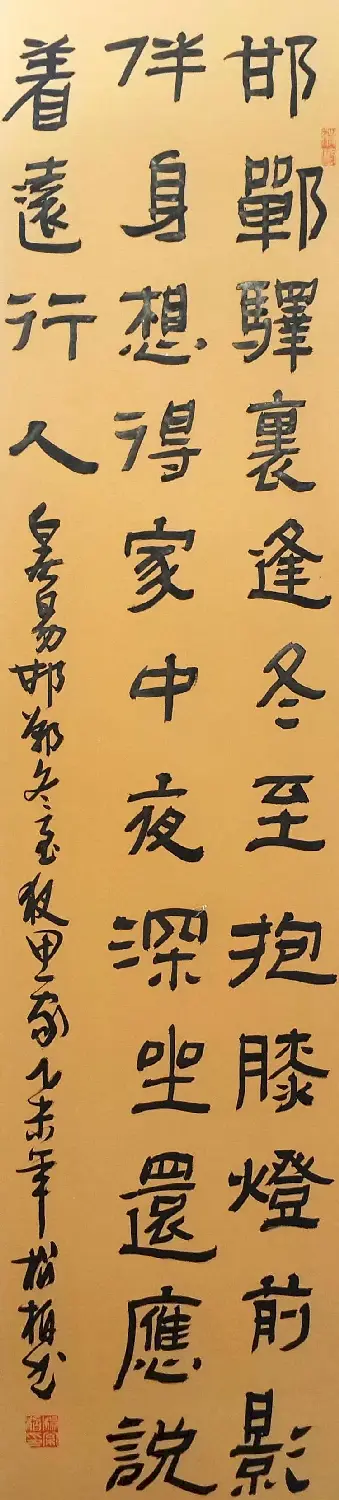 邯鄲驛裏逢冬至抱膝燈前影
伴身想得家中夜深坐還應說
着遠行人
白居易邯鄲冬至夜思家乙未年松柏书